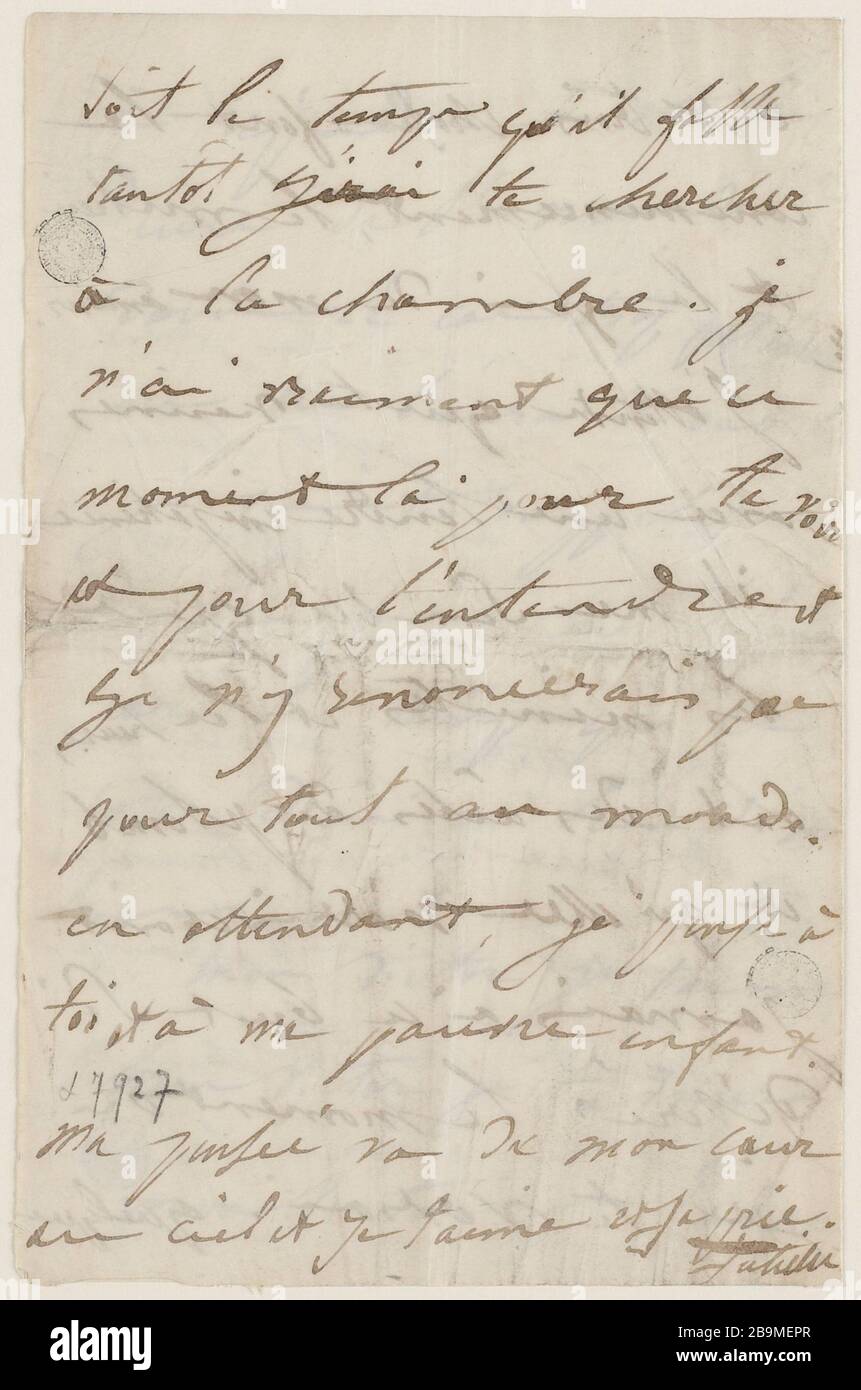 soit le temps qu'il fasse
tantôt j'irai te chercher
à la chambre. je
n'ai vraiment que ce
moment là pour te voir
et pour t'entendre et
je n'y renoncerais pas
pour tout au monde.
en attendant, je pense à
toi et à ma pauvre enfant.
17927
ma pensée va de mon cœur
au ciel et je t'aime et je prie.
Juliette
alamy
Image ID: 2B9MEPR
www.alamy.com